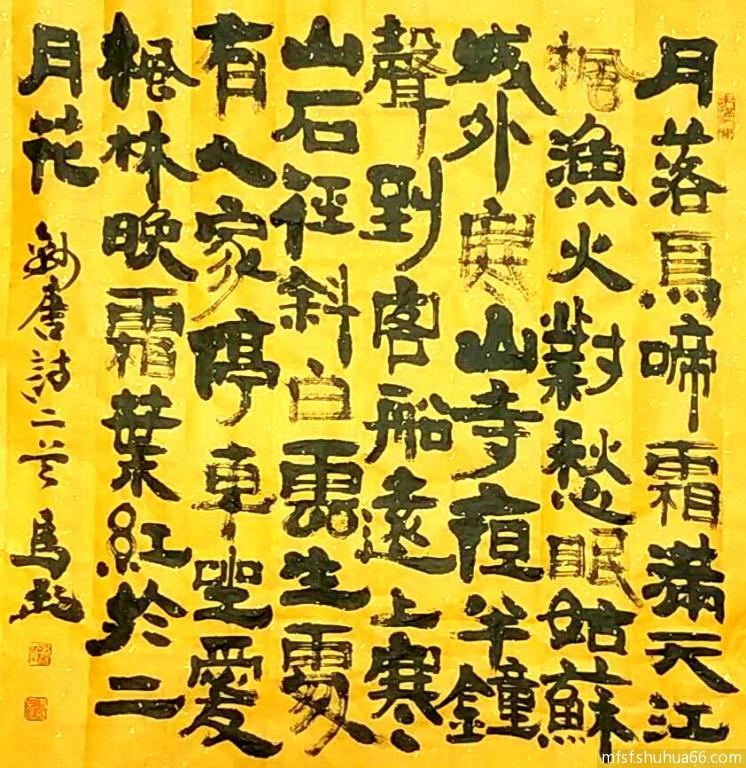 月落烏啼霜滿天江
楓漁火對愁眠姑蘇
城外寒山寺夜半鐘
聲到客船遠上寒
山石徑斜白雲生處
有人家停車坐愛
楓林晚霜葉紅於二
月花
錄唐詩二首 馬
mfsf.shuhua66.com